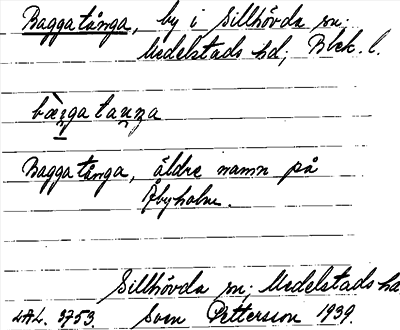 Baggatånga, by i Sillhövda sn.
Medelstads hd, Blek. l.
Baggatånga, äldre namn på
Åbyholm.
Sillhövda sn. Medelstads hd
LAL. 3753. Sven Pettersson 1939.